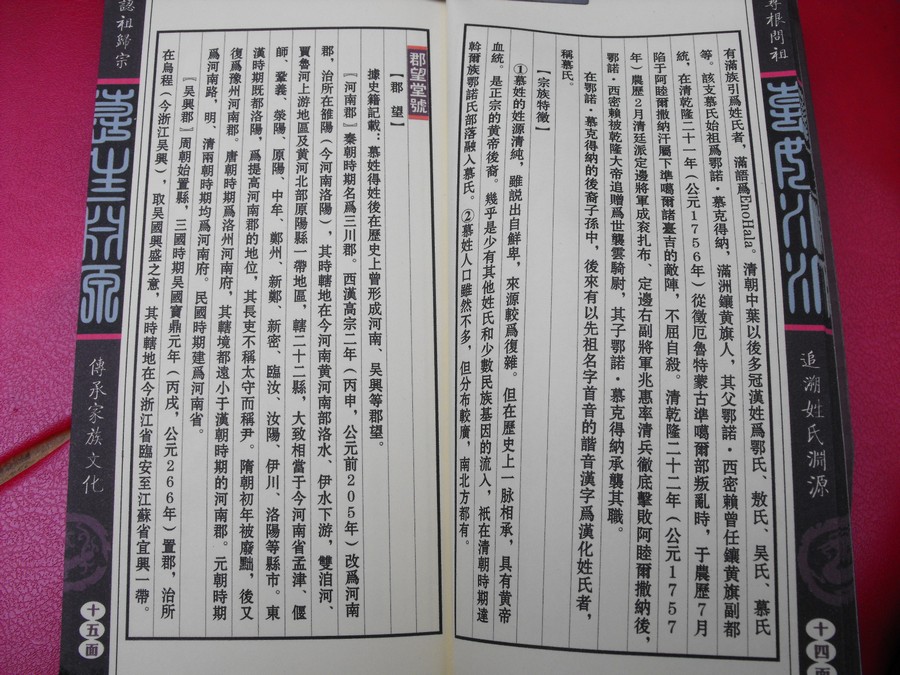 尋根問祖
追溯姓氏淵源
十四面
有滿族引爲姓氏者，滿語爲EnoHala。清朝中葉以後多冠漢姓爲鄂氏、敖氏、吴氏、慕氏
等。該支慕氏始祖爲鄂诺·慕克得納，滿洲鑲黄旗人，其父鄂诺·西密賴曾任鑲黄旗副都
統，在清乾隆二十一年（公元1756年）從徵厄魯特蒙古準噶爾部叛亂時，于農歷7月
陷于阿睦爾撒納汗屬下準噶爾諸臺吉的敵陣，不屈自殺。清乾隆二十二年（公元1757
年）農歷2月清廷派定邊將軍成衮扎布、定邊右副將軍兆惠率清兵徹底擊敗阿睦爾撒納後，
鄂诺·西密賴被乾隆大帝追贈爲世襲雲騎尉，其子鄂诺·慕克得納承襲其職。
在鄂诺·慕克得納的後裔子孫中，後來有以先祖名字首音的諧音漢字爲漢化姓氏者，
稱慕氏。
【宗族特徵】
①慕姓的姓源清純，雖説出自鮮卑，來源較爲復雜。但在歷史上一脉相承，具有黄帝
血統。是正宗的黄帝後裔。幾乎是少有其他姓氏和少數民族基因的流入，衹在清朝時期達
斡爾族鄂诺氏部落融入慕氏。②慕姓人口雖然不多，但分布較廣，南北方都有。
郡望堂號
【郡望】
據史籍記載：慕姓得姓後在歷史上曾形成河南、吴興等郡望。
『河南郡』秦朝時期名爲三川郡。西漢高宗二年（丙申，公元前205年）改爲河南
郡，治所在雒陽（今河南洛陽），其時轄地在今河南黄河南部洛水、伊水下游，雙洎河、
賈魯河上游地區及黄河北部原陽縣一帶地區，轄二十二縣，大致相當于今河南省孟津、偃
師、鞏義、滎陽、原陽、中牟、鄭州、新鄭、新密、臨汝、汝陽、伊川、洛陽等縣市。東
漢時期既都洛陽，爲提高河南郡的地位，其長吏不稱太守而稱尹。隋朝初年被廢黜，後又
復爲豫州河南郡。唐朝時期爲洛州河南府，其轄境都遠小于漢朝時期的河南郡。元朝時期
爲河南路，明、清兩朝時期均爲河南府。民國時期建爲河南省。
『吴興郡』周朝始置縣，三國時期吴國寶鼎元年（丙戌，公元266年）置郡，治所
在烏程（今浙江吴興），取吴國興盛之意，其時轄地在今浙江省臨安至江蘇省宜興一帶。
認祖歸宗
傳承家族文化
十五面